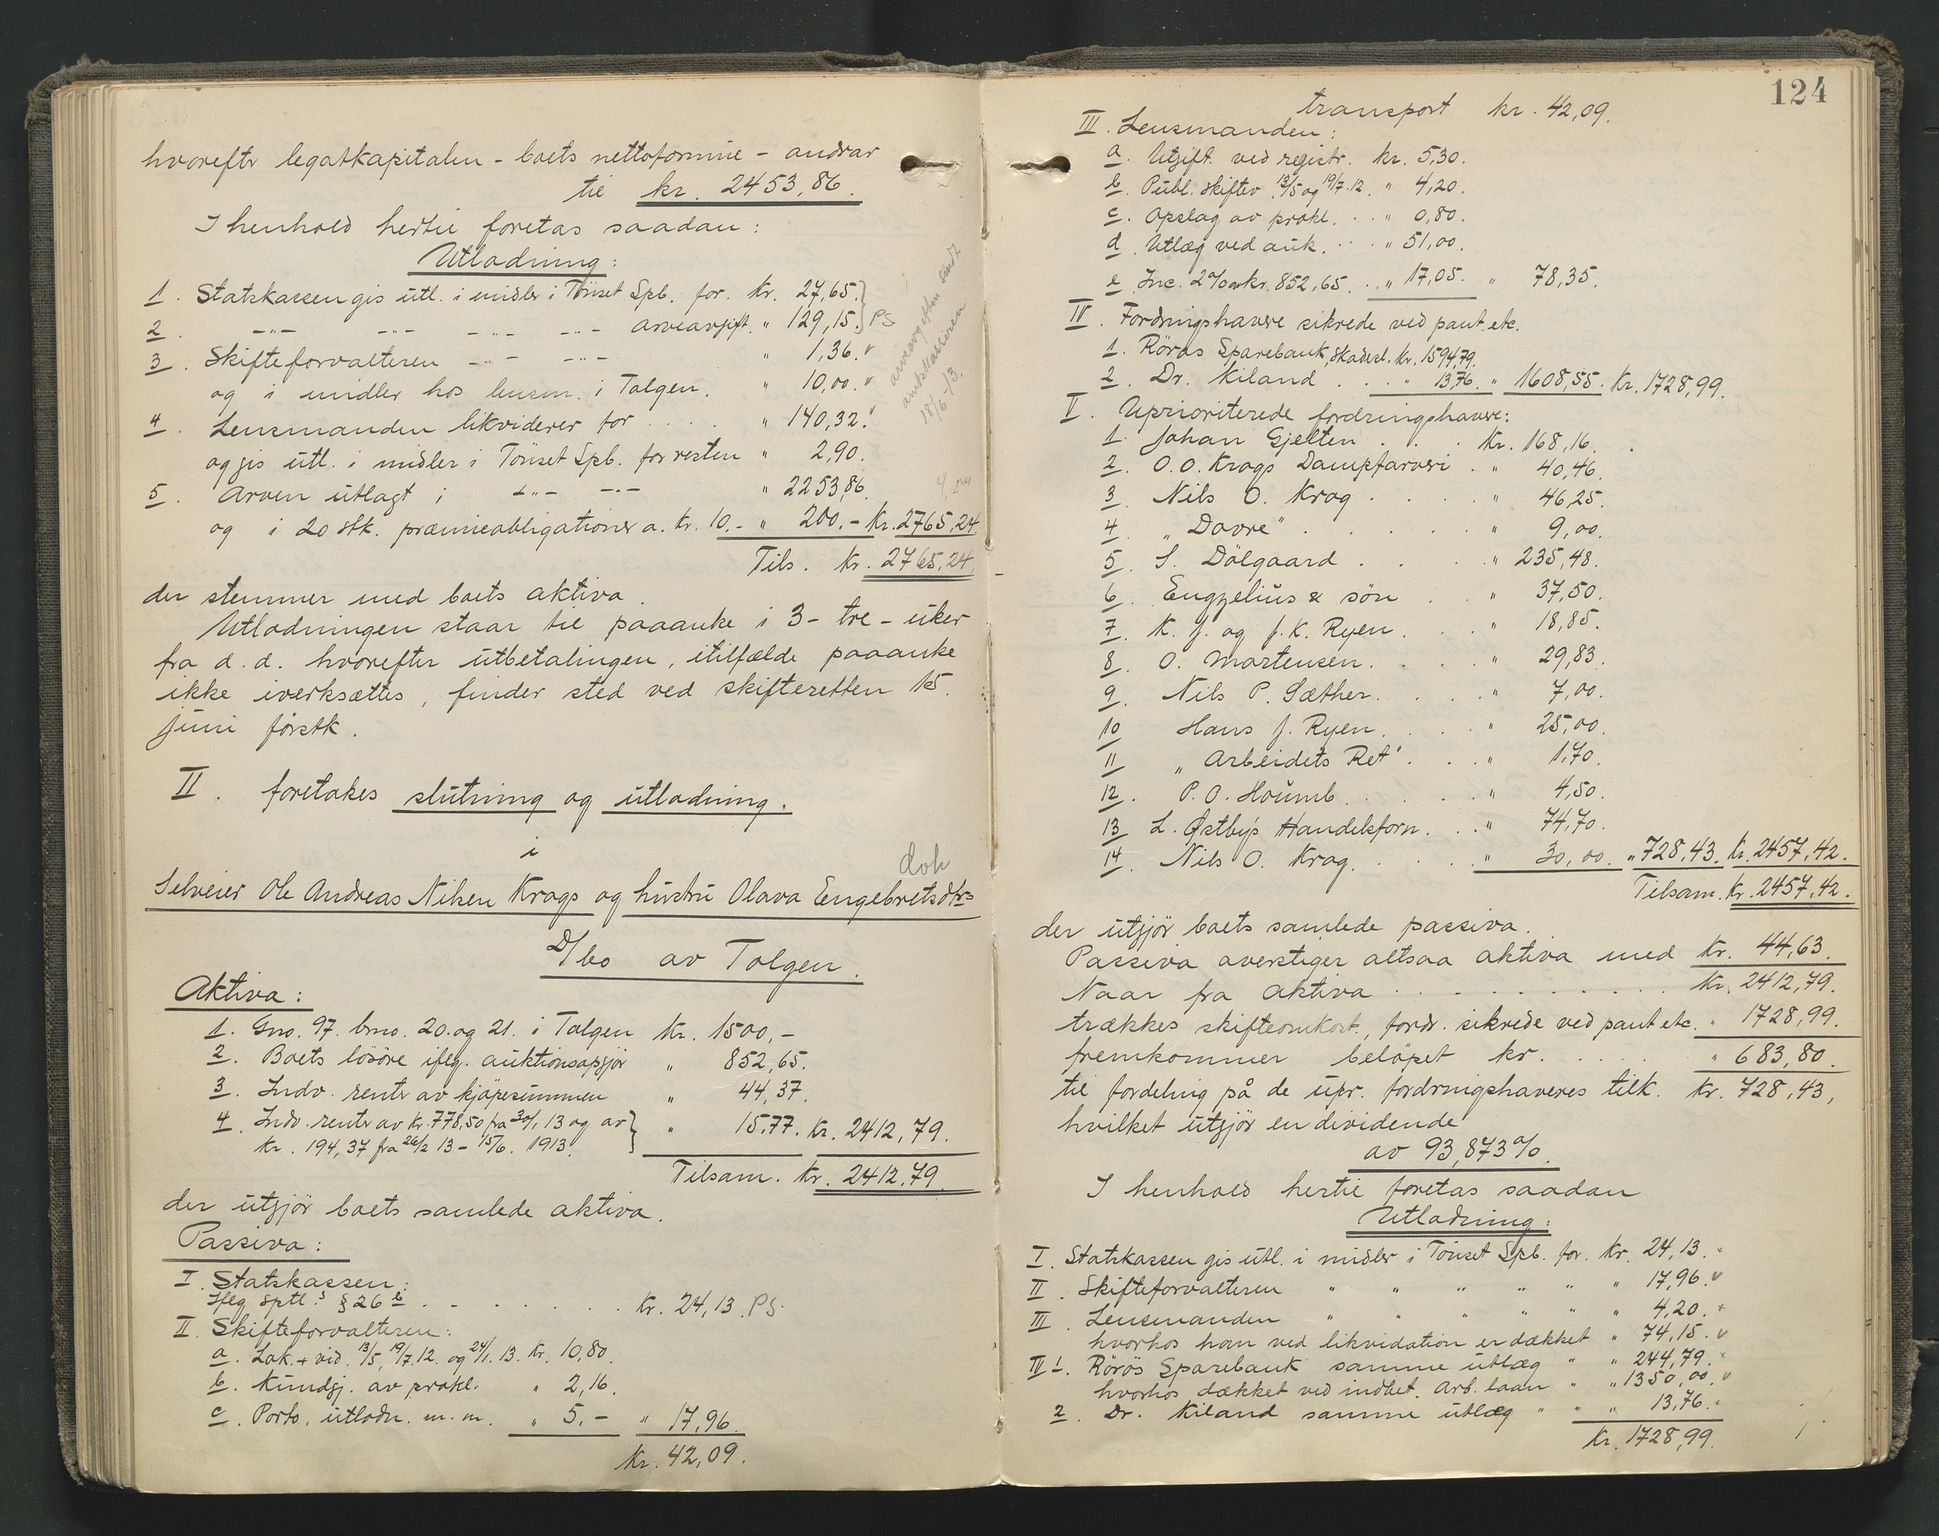 hvorefter legatkapitalen - boets nettoformue - andrar
til kr. 2453,86.
I henhold hertil foretas saadan:
Utlodning:
1. Statskassen gis utl. i midler i Tönset Spb. for. Kr. 27,65.
2. -"- -"- -"- -"- arveavgift. " 129,15. PS
3. Skifteforvalteren -"- -"- " 1,36. v
og i midler hos lensm. i Tolgen. " 10,00. v
4. Lensmanden likviderer for . . . . " 140,32. v
og gis utl. i midler i Tönset Spb. for resten " 2,90.
5. Arven utlagt i -"- -"- " 2253,86.
og i 20 stk. præmieobligationer a. Kr. 10.- " 200.- Kr. 2765,24
Tils. Kr. 2765,24.
arveavgiften sendt
amtskasseren
18/6 13.
der stemmer med boets aktiva.
Utlodningen staar til paaanke i 3 - tre - uker
fra d. d. hvorefter utbetalingen, itilfælde paaanke
ikke iverksættes, finder sted ved skifteretten 15.
juni førstk.
II. foretakes slutning og utlodning.
i
dok
Selveier Ole Andreas Nilsen Krogs og hustru Olava Engebretsdtrs
D/bo av Tolgen.
Aktiva:
1. Gno. 97. bno. 20. og 21. i Tolgen Kr. 1500,-
2. Boets lösöre ifлg. auktionsopgjör " 852,65.
3. Indv. renter av kjöpesummen " 44,37.
4. Indv. renter av Kr. 778,50 fra 30/1 13 og av " 15,77. Kr. 2412,79.
Kr. 194,37 fra 26/2 13 - 15/6. 1913.
Tilsam. Kr. 2412,79.
der utgjör boets samlede aktiva.
Passiva:
I. Statskassen:
Ifлg sptl.s § 26 b . . . . . . . Kr. 24,13. PS.
II. Skifteforvalteren:
a. Lok. + vid. 13/5, 19/7.12. og 24/1. 13. Kr. 10,80.
b. Kundgj. av prokl. " 2,16.
c. Porto, utlodn. m. m. " 5,- " 17,96.
Kr. 42,09.
124
transport kr. 42,09.
III. Lensmanden:
a. Utgift. ved registr. kr. 5,30.
b. Publ. skiftev. 13/5 og 19/7.12. " 4,20.
c. Opslag av prokl. . . " 0,80.
d. Utlæg ved auk. . . . " 51,00.
e. Inc. 2% av kr. 852,65. . " 17,05. " 78,35.
IV. Fordringshavere sikrede ved pant. etc.
1. Röros Sparebank, skadesl. Kr. 1594,79.
2. Dr. Kiland . . . " 13,76. " 1608,55. Kr. 1728,99.
V. Uprioriterede fordringshavere:
1. Johan Gjelten . . . Kr. 168,16.
2. O. O. Krogs Dampfarveri . " 40,46.
3. Nils O. Krog . . . . " 46,25.
4. „Dovre" . . . . . " 9,00.
5. S. Dölgaard . . . . " 235,48.
6. Engzelius & sön . . " 37,50.
7. K. J. og J. K. Ryen . . . " 18,85.
8. O. Mortensen. . . . . " 29,83.
9. Nils P. Sæther. . . . . " 7,00.
10 Hans J. Ryen. . . . . " 25,00.
11 „Arbeidets Ret" . . . " 1,70.
12. P. O. Houmb. . . . . . " 4,50.
13 L. Østby's Handelsforn. . . " 74,70.
14. Nils O. Krog. . . . . " 30,00. " 728,43. Kr. 2457,42.
Tilsam. Kr. 2457,42.
der utgjör boets samlede passiva.
Passiva overstiger altsaa aktiva med Kr. 44,63.
Naar fra aktiva . . . . . . . . . Kr. 2412,79.
trækkes skifteomkost., fordr. sikrede ved pant etc. " 1728,99.
fremkommer beløpet kr. . . . . " 683,80.
til fordeling på de upr. fordringshaveres tilk. kr. 728,43,
hvilket utgjör en dividende
av 93,873%.
I henhold hertil foretas saadan
Utlodning:
I. Statskassen gis utl. i midler i Tönset Spb. for. Kr. 24,13.
II. Skifteforvalteren " " " " " " 17,96. v
III. Lensmanden " " " " " " 4,20.
hvorhos han ved likvidation er dækket " 74,15. v
IV 1. Röros Sparebank samme utlæg " " 244,79.
hvorhos dækket ved indbet. Arb. laan " " 1350,00. v
2. Dr. Kiland samme utlæg " " " 13,76.
Kr. 1728,99.